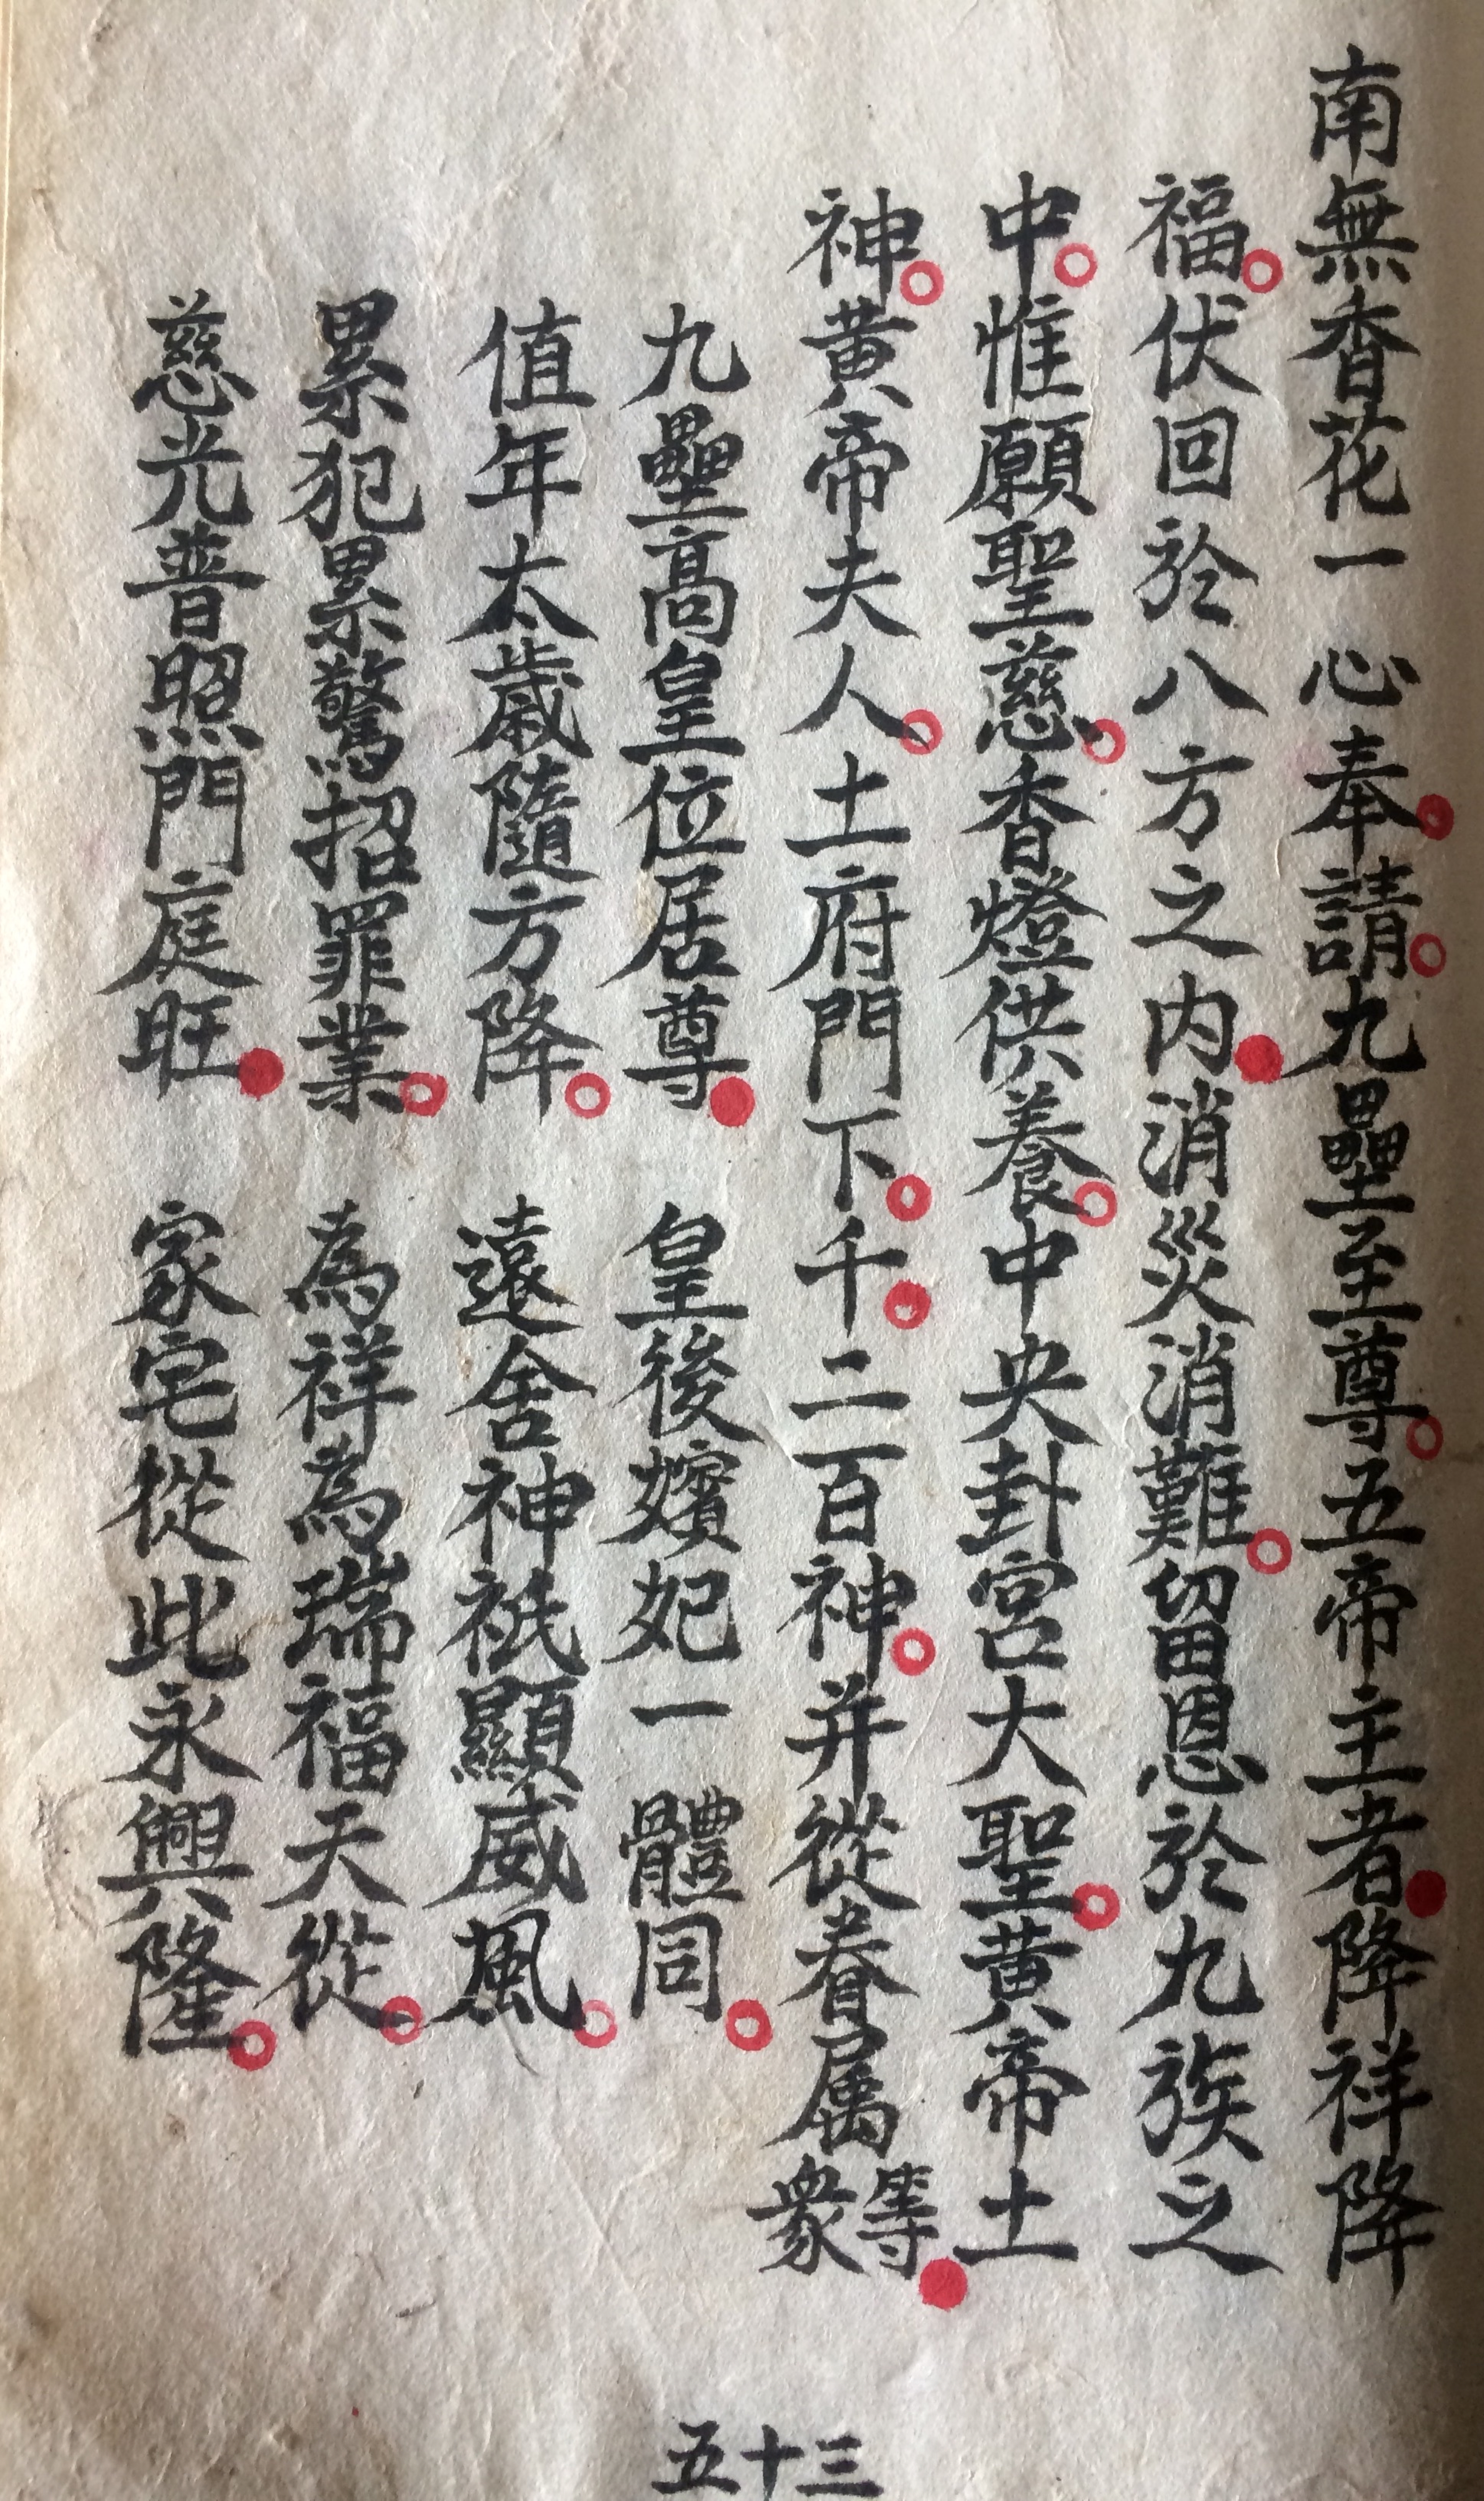 南無香花一心奉請九壘至尊五帝主者降祥降
福伏回於八方之内消災消難留恩於九族之
中惟願聖慈香燈供養中央卦宮大聖黄帝土
神黄帝夫人土府門下千二百神并從眷属等衆
九壘高皇位居尊 皇後嬪妃一體同
值年太歲隨方降 遠舍神祇顯威風
累犯累驚招罪業 為祥為瑞福天從
慈光普照門庭旺 家宅從此永興隆
五十三